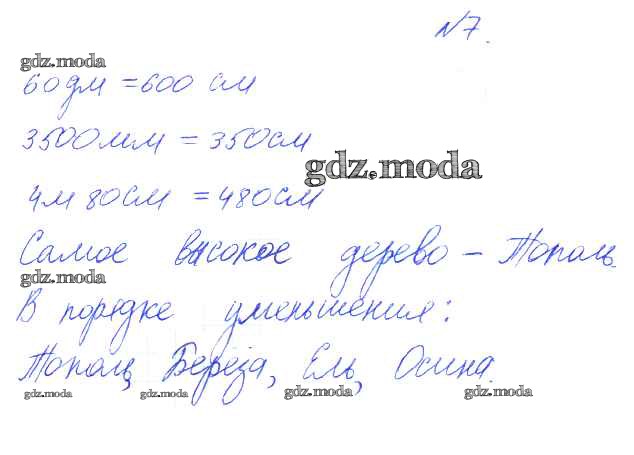 №7.
gdz.moda
60дм = 600 см
3500мм = 350см
gdz.moda
4м 80см = 480см
Самое высокое дерево – Тополь.
gdz.moda
В порядке уменьшения:
Тополь, Берёза, Ель, Осина.
gdz.moda gdz.moda gdz.moda gdz.moda